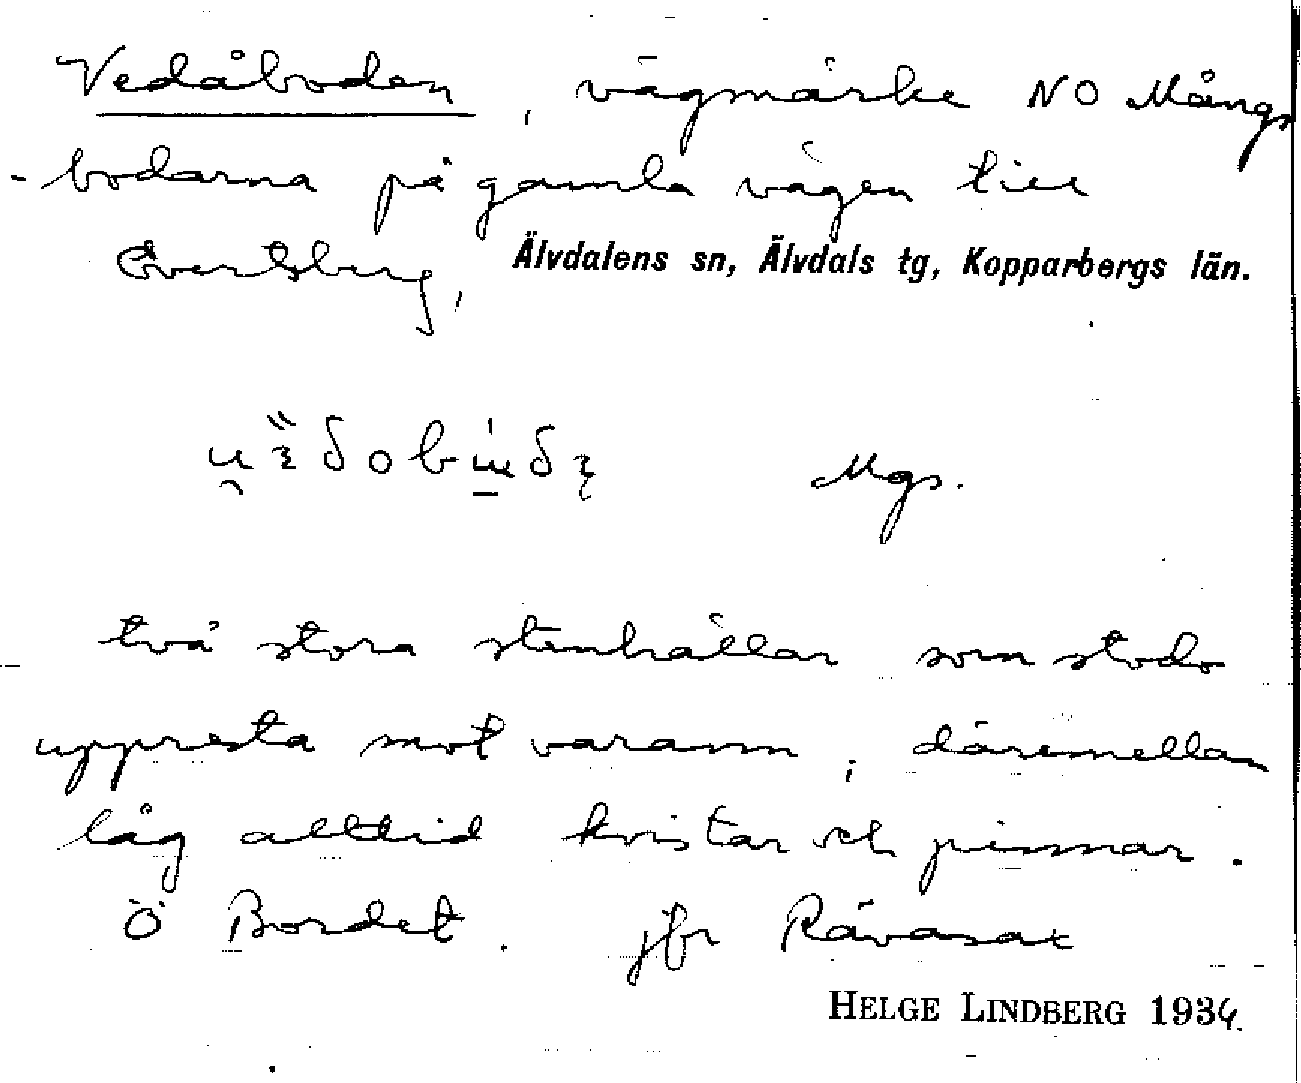 Vedåboden, vägmärke NO Mångs
-bodarna på gamla vägen till
Evertsberg, Älvdalens sn, Älvdals tg, Kopparbergs län.
Mgs.
två stora stenhällar som stodo
uppresta mot varann, däremellan
låg alltid kvistar och pinnar.
Ö Bordet. jfr Rävasax
HELGE LINDBERG 1934